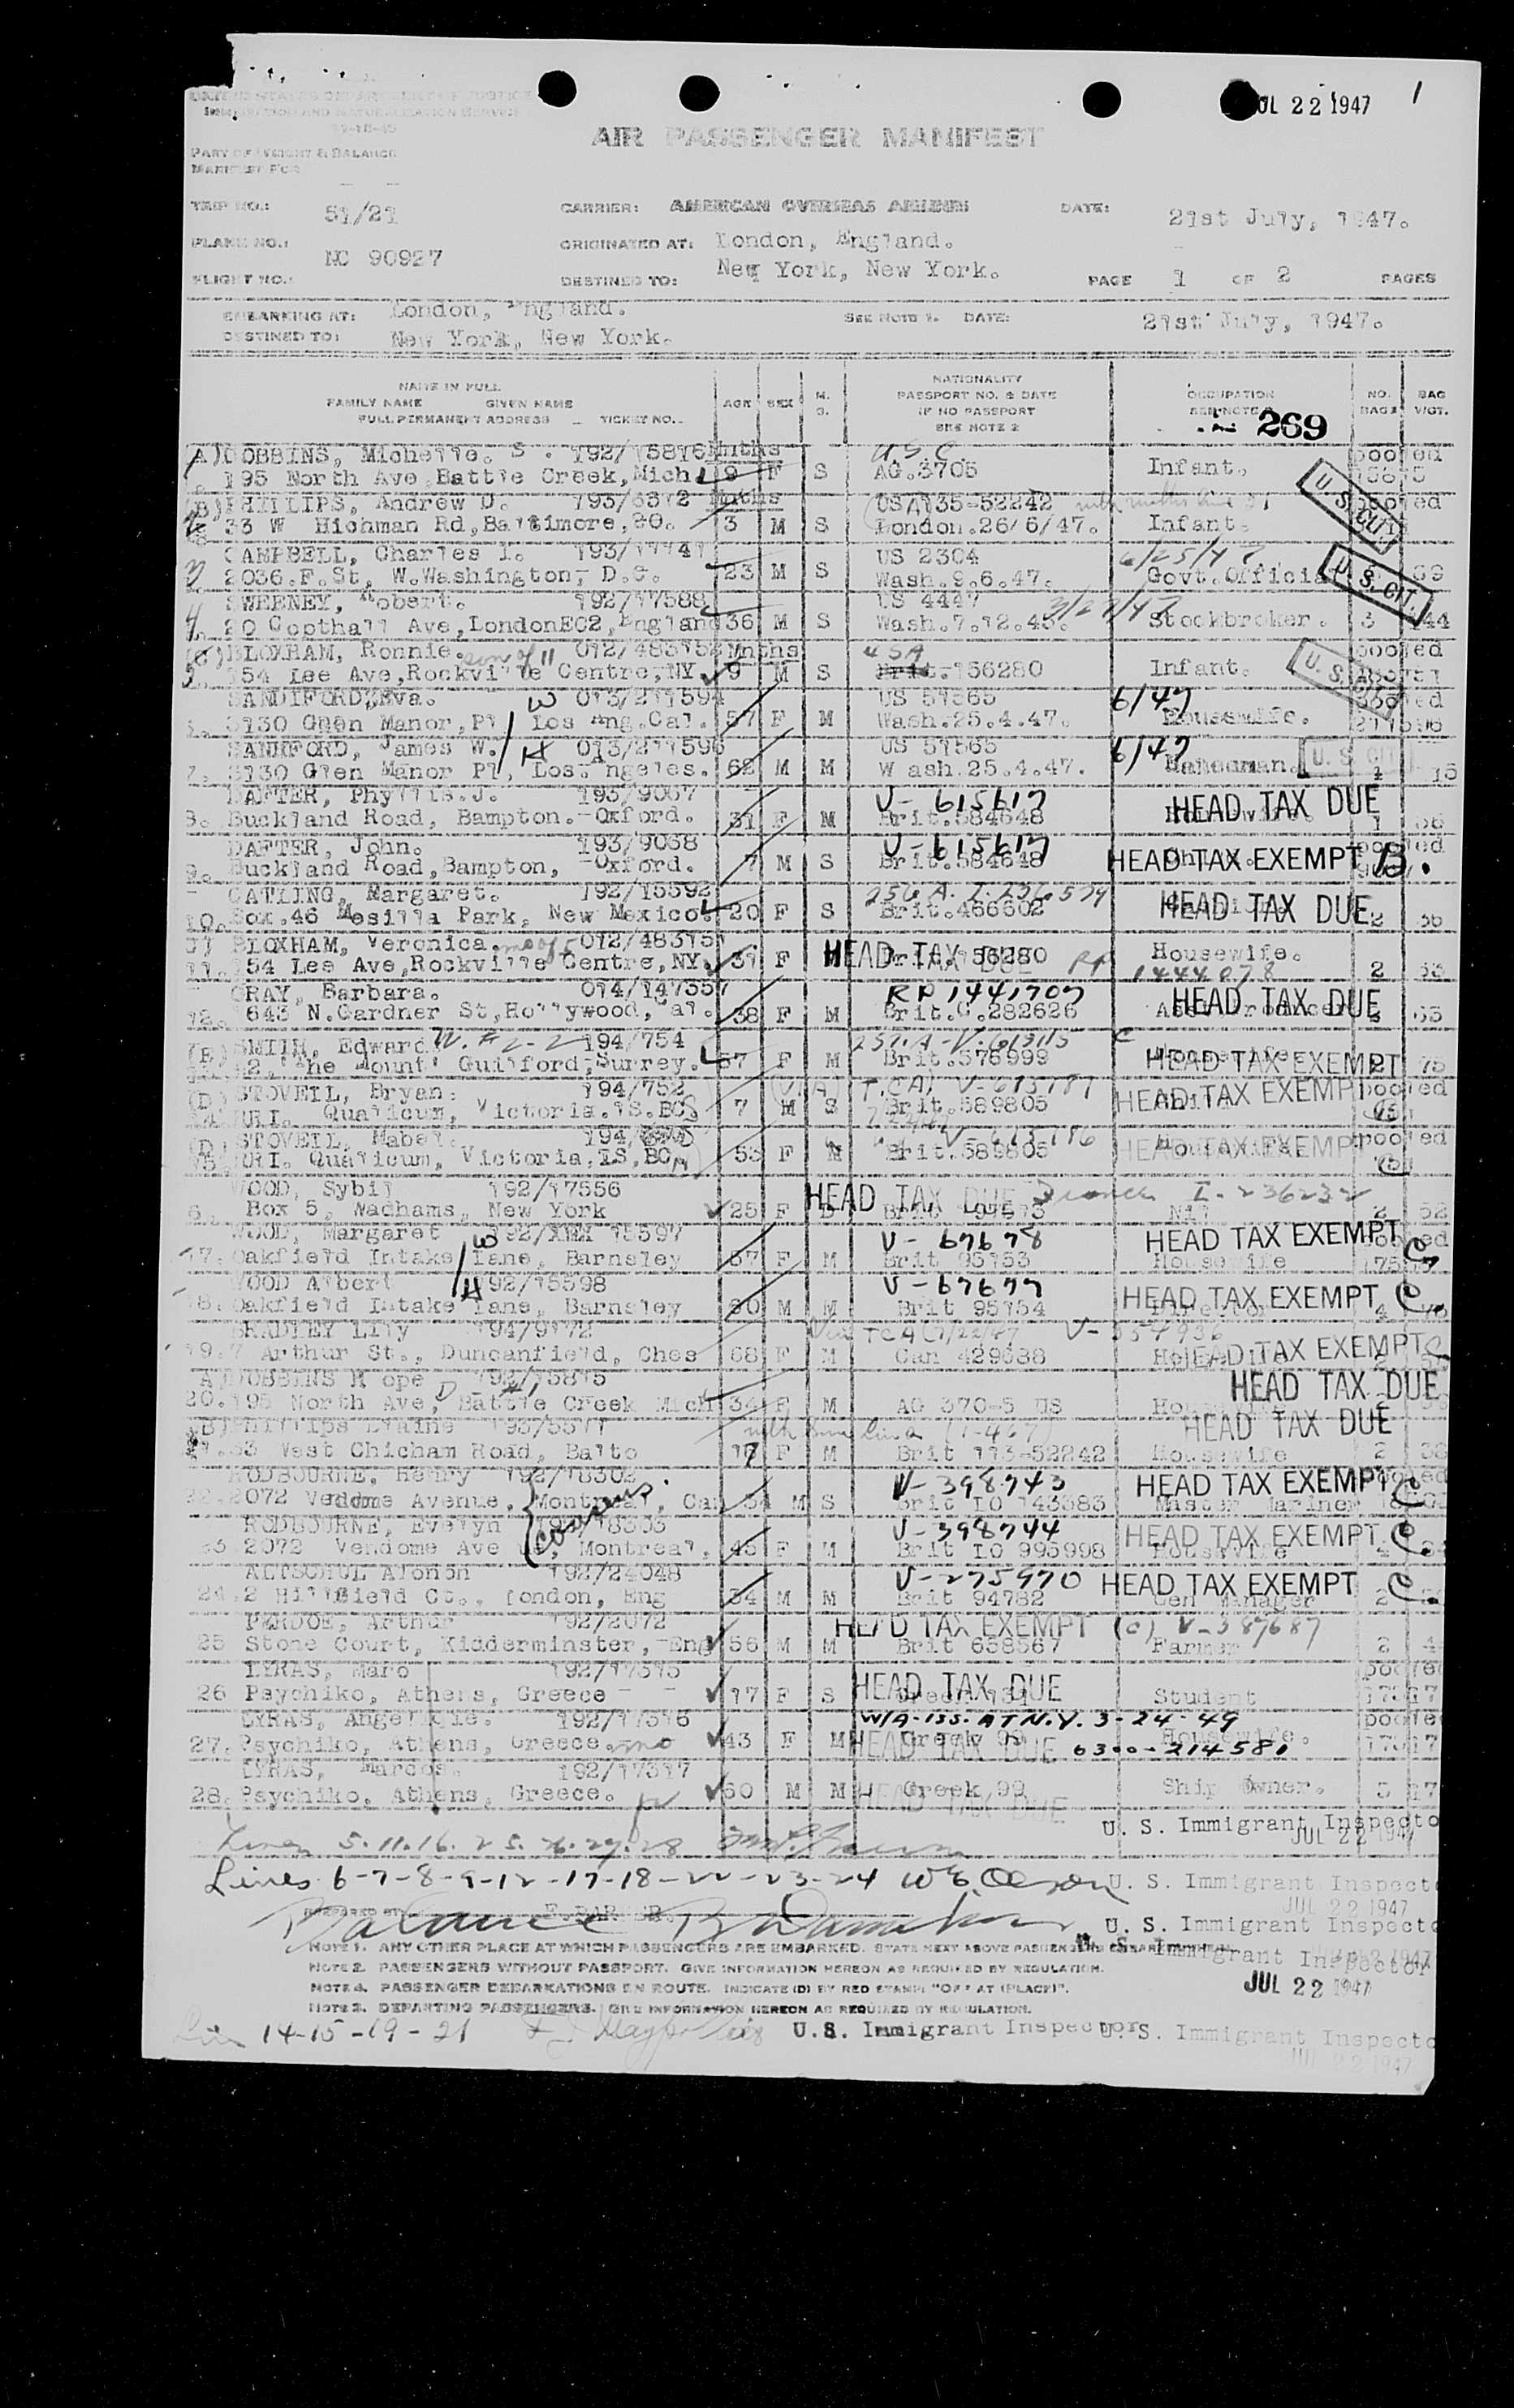 JUL 22 1947 1
UNITED STATES DEPARTMENT OF JUSTICE
IMMIGRATION AND NATURALIZATION SERVICE
AIR PASSENGER MANIFEST
PART OF WEIGHT & BALANCE
MANIFEST FOR
TRIP NO.: 51/21 CARRIER: AMERICAN OVERSEAS AIRLINES DATE: 21st July, 1947.
PLANE NO.: NC 90927 ORIGINATED AT: London, England.
FLIGHT NO.: DESTINED TO: New York, New York. PAGE 1 OF 2 PAGES
EMBARKING AT: London, England. SEE NOTE 1. DATE: 21st July, 1947.
DESTINED TO: New York, New York.
NAME IN FULL
FAMILY NAME GIVEN NAME
FULL PERMANENT ADDRESS TICKET NO.
AGE SEX M. S.
NATIONALITY
PASSPORT NO. & DATE
IF NO PASSPORT
SEE NOTE 2
OCCUPATION
SEE NOTE
NO. BAGS BAG WGT.
269
A) DOBBINS, Michelle. S. 192/15816 Mnths U.S.C. pooled
1. 195 North Ave Battle Creek, Mich 9 F S AG.3705 Infant. 15815
(B) PHILLIPS, Andrew D. 193/6312 Mnths USA 135-52242 pooled
33 W Hichman Rd, Baltimore, 3 M S London.26/6/47. Infant. U. S. CIT.
CAMPBELL, Charles I. 193/11141 US 2304 6/25/47
3 2036.F.St, W.Washington, D.C. 23 M S Wash.9.6.47. Govt.Official U. S. CIT.
SWEENEY, Robert. 192/17588 US 4447 3/27/47
4. 20 Copthall Ave, LondonEC2, England 36 M S Wash.7.12.45. Stockbroker. 3 44
(C) BLOXHAM, Ronnie. son of 11 012/483152 Mnths USA pooled
5. 154 Lee Ave, Rockville Centre, NY. 9 M S Brit. 156280 Infant. U. S. CIT.
SANDIFORD, Eva. W 013/211594 US 51565 6/47 pooled
3130 Glen Manor, Pl Los Ang.Cal. 57 F M Wash.25.4.47. Housewife. 211596
SANDIFORD, James W. H 013/211596 US 51565 6/47
7. 3130 Glen Manor Pl, Los.Angeles. 62 M M Wash.25.4.47. U. S. CIT. 1 15
DAFTER, Phyllis.J. 193/9067 V- 615617 HEAD TAX DUE
8. Buckland Road, Bampton.-Oxford. 31 F M Brit.584648 1 56
DAFTER, John. 193/9068 V-615617 pooled
9. Buckland Road, Bampton, -Oxford. 7 M S Brit.584648 HEAD TAX EXEMPT B.
CATLING, Margaret. 192/15592 256 A. I. 236,579
10. Box.46 Mesilla Park, New Mexico. 20 F S Brit.466602 HEAD TAX DUE 2 36
BLOXHAM, Veronica. mo of 5 012/483151 Housewife.
11. 154 Lee Ave, Rockville Centre, NY. 31 F HEAD TAX DUE Brit. 156280 RP 1444078 2 53
GRAY, Barbara. 014/147557 RP 1441707 HEAD TAX DUE
12. 643 N.Gardner St, Hollywood, Cal. 38 F M Brit.C.282626 Asst Producer 3 55
(E) SMITH, Edward 194/754 257.A-V.613115 C
42, The Mount Guilford, Surrey. 57 F M Brit.576999 HEAD TAX EXEMPT 2 75
(D) STOVELL, Bryan. 194/752 T.C.A. V-615187 HEAD TAX EXEMPT pooled
14. RRI. Qualicum, Victoria.IS.BC 7 M S Brit.589805
(D) STOVELL, Mabel. 194/ V-615186 pooled
15. RRI. Qualicum, Victoria.IS.BC 53 F M Brit.589805 HEAD TAX EXEMPT
WOOD, Sybil 192/17556 HEAD TAX DUE I-236232
Box 5, Wadhams, New York 25 F Brit 97573 Nil 2 52
WOOD, Margaret W 192/XXX 15597 V- 67678 HEAD TAX EXEMPT pooled
17. Oakfield Intake Lane, Barnsley 57 F M Brit 95153 Housewife
WOOD Albert H 192/15598 V-67677 HEAD TAX EXEMPT C.
18. Oakfield Intake Lane, Barnsley 60 M M Brit 95154 4
BRADLEY Lily 194/9172 Via TCA (7/22/47 V-354936
19. 7 Arthur St., Duncanfield, Ches 68 F M Can 429638 HEAD TAX EXEMPT
A) DOBBINS Hope 192/15815 HEAD TAX DUE
20. 195 North Ave, Battle Creek Mich 34 F M AG 370-5 US Housewife
(B) Phillips Elaine 193/5311 HEAD TAX DUE
21. 33 West Chicham Road, Balto 17 F M Brit 113-52242 Housewife 2 38
RODBOURNE, Henry 192/18302 V-398743 HEAD TAX EXEMPT
22. 2072 Vendome Avenue, Montreal, Can 54 M S Brit LO 143583 Master Mariner
cousins.
RODBOURNE, Evelyn 192/18303 V-398744 HEAD TAX EXEMPT C.
23 2072 Vendome Ave, Montreal, 45 F M Brit LO 995998 Housewife
ALTSCHUL Alfonon 192/24048 V-275970 HEAD TAX EXEMPT C.
24. 2 Hillfield Ct., London, Eng 34 M M Brit 94782 Gen Manager 2
PARDOE, Arthur 192/2072 HEAD TAX EXEMPT (C) V-387687
25 Stone Court, Kidderminster, Eng 56 M M Brit 658567 Farmer 2 4
LYRAS, Maro 192/17315 HEAD TAX DUE pooled
26 Psychiko, Athens, Greece 17 F S Greek 131 Student 17317
LYRAS, Angelikie. 192/17316 W/A-ISS. AT N.Y. 3-24-49 pooled
27. Psychiko, Athens, Greece. 43 F M Greek 99 HEAD TAX DUE Housewife. 6300-214581 17317
LYRAS, Marcos. 192/17317
28. Psychiko, Athens, Greece. 60 M M Greek 99 HEAD TAX DUE Ship Owner. 5 17
U. S. Immigrant Inspector
JUL 22 1947
Lines 5.11.16.25.26.27.28
Lines 6-7-8-9-12-17-18-22-23-24 U. S. Immigrant Inspector
JUL 22 1947
Balance U. S. Immigrant Inspector
NOTE 1. ANY OTHER PLACE AT WHICH PASSENGERS ARE EMBARKED. STATE NEXT ABOVE PASSENGERS EMBARKED
U. S. Immigrant Inspector JUL 22 1947
NOTE 2. PASSENGERS WITHOUT PASSPORT. GIVE INFORMATION HEREON AS REQUIRED BY REGULATION.
NOTE 4. PASSENGER DEBARKATIONS EN ROUTE. INDICATE (D) BY RED STAMP "OFF AT (PLACE)".
JUL 22 1947
NOTE 3. DEPARTING PASSENGERS. GIVE INFORMATION HEREON AS REQUIRED BY REGULATION.
Lin 14-15-19-21 U.S. Immigrant Inspector U. S. Immigrant Inspector
JUL 22 1947